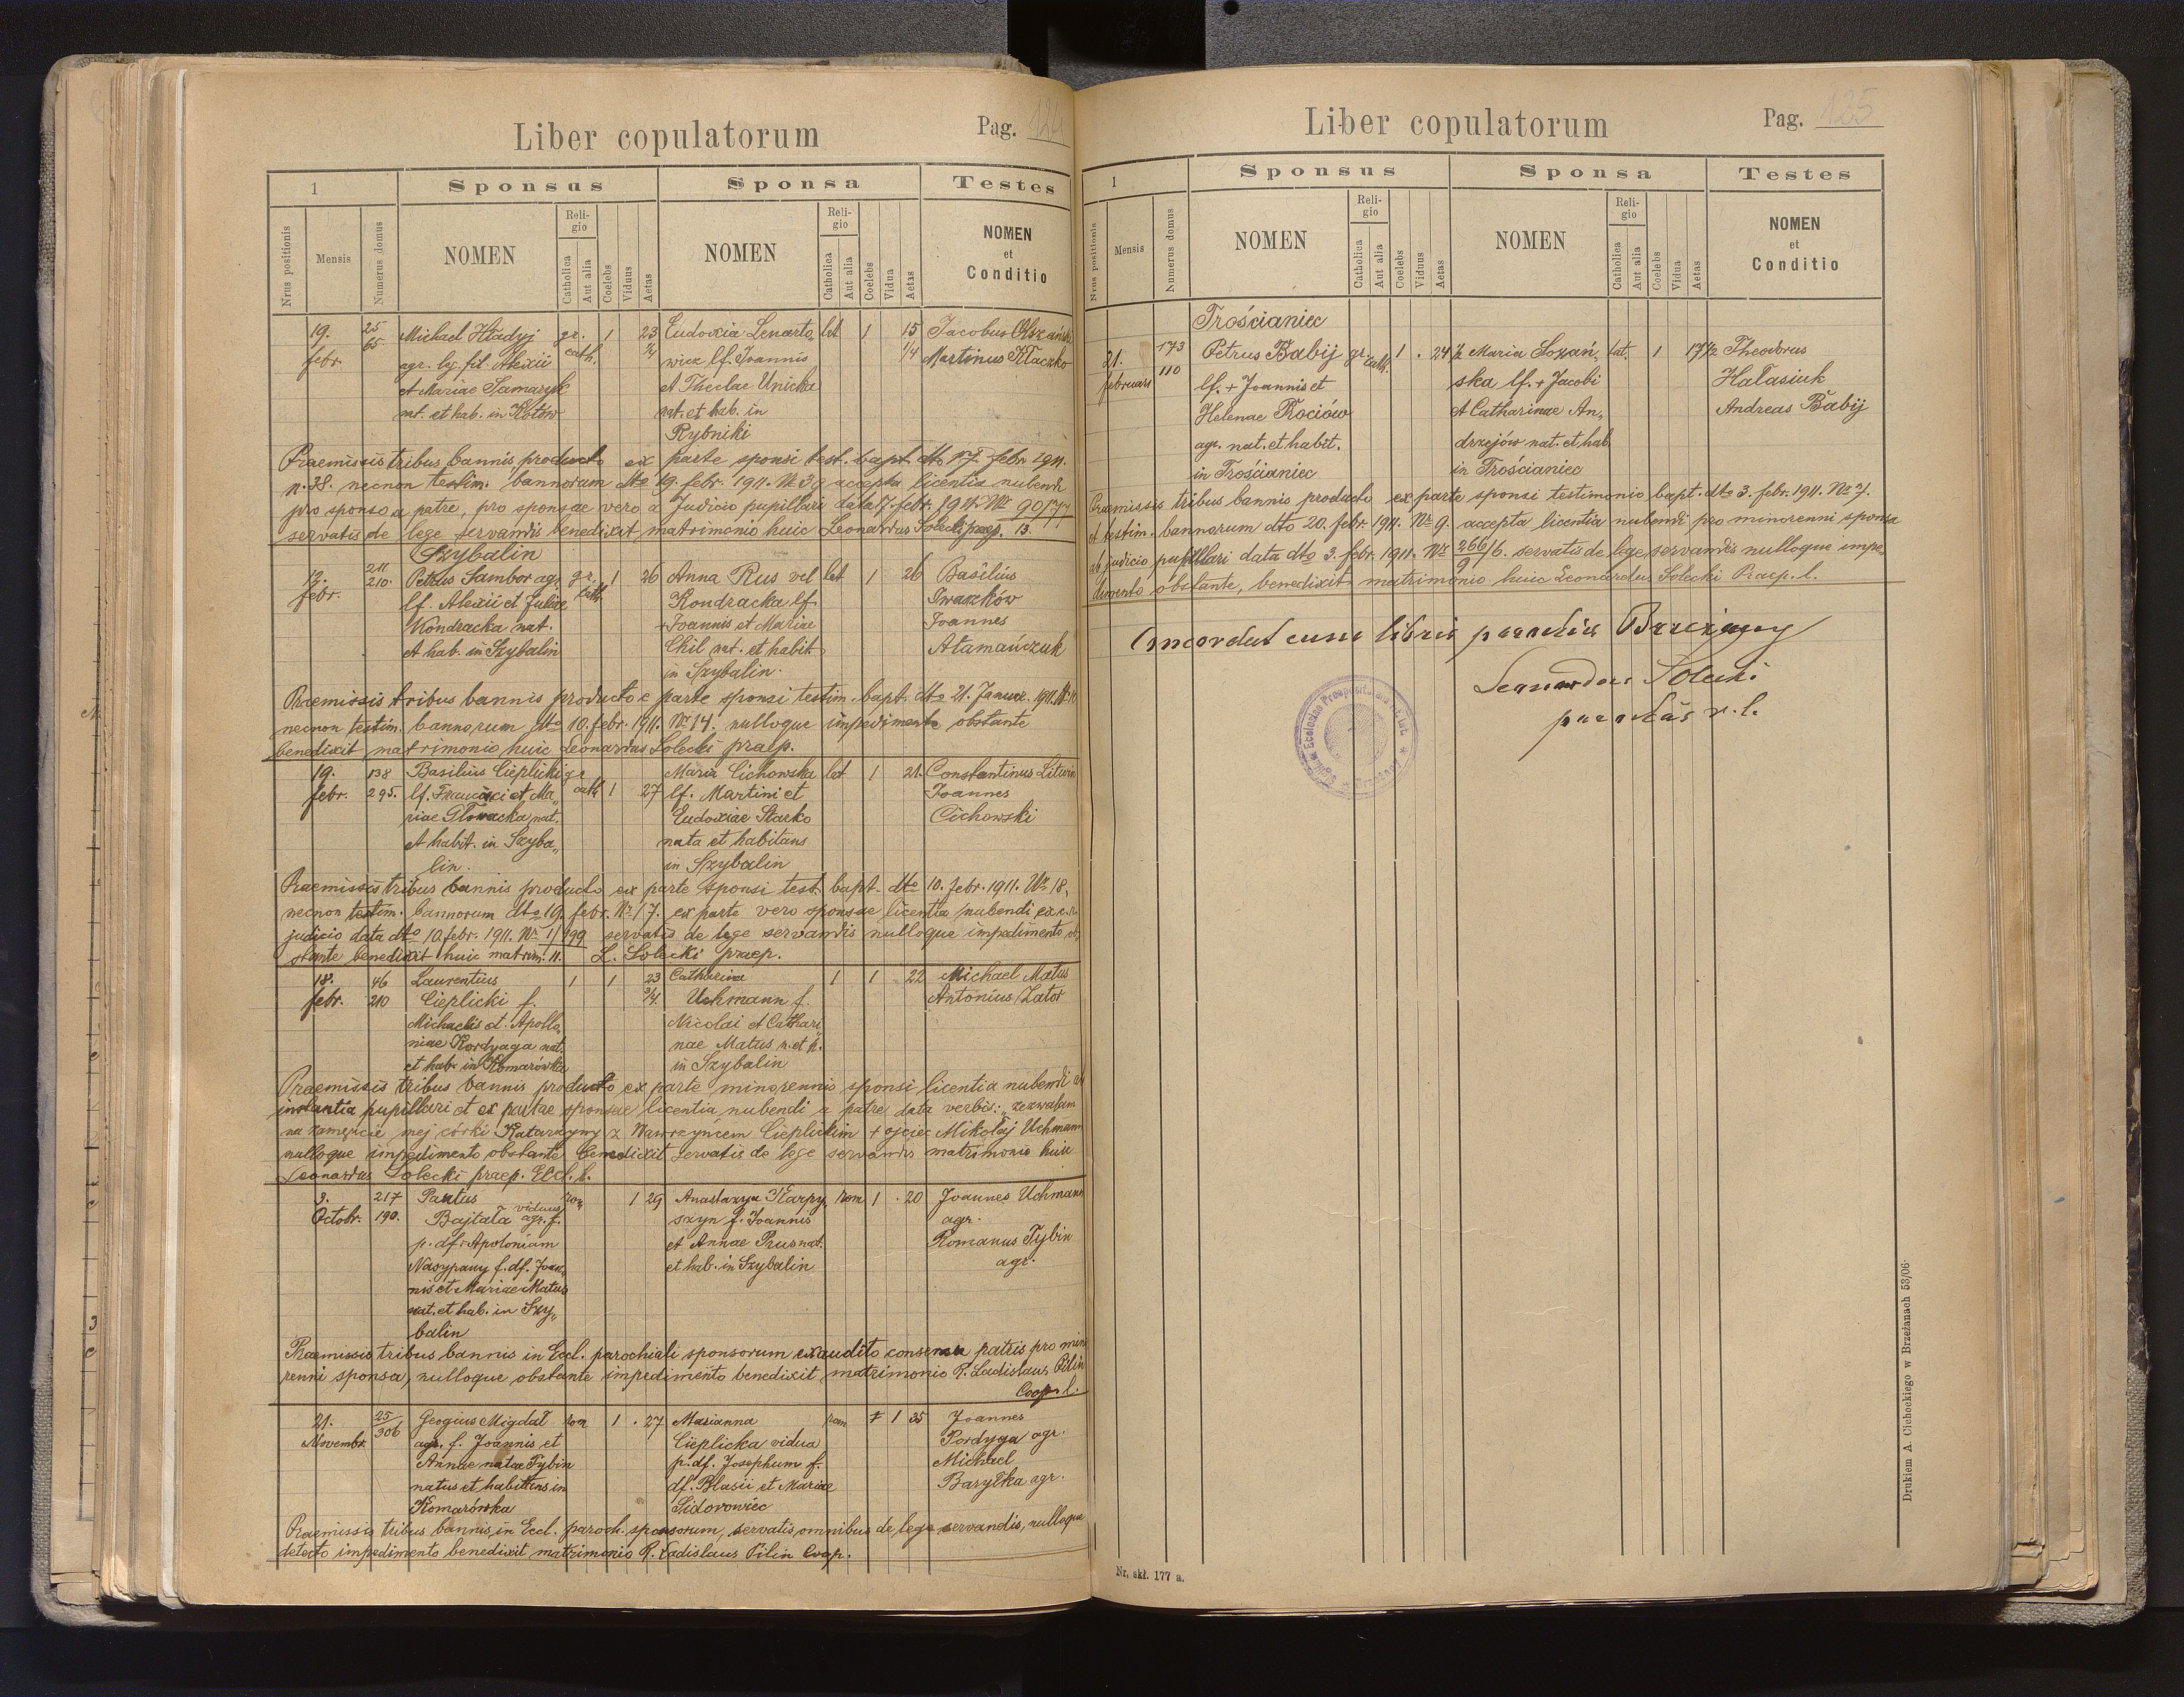 Liber copulatorum
Pag. 124
1
Sponsus
Sponsa
Testes
Nrus positionis
Mensis
Numerus domus
NOMEN
Religio
Catholica
Aut alia
Coelebs
Viduus
Aetas
NOMEN
Religio
Catholica
Aut alia
Coelebs
Vidua
Aetas
NOMEN
et
Conditio
19. 25 Michael Hładyj gr. 1 23 Eudoxia Lenarto„ lat 1 15 Jacobus Olszański
febr. 65 agr. lg. fil. Alexii cath. 1/4 wicz lf. Joannis 1/4 Martinus Kłaczko
et Mariae Samaryk et Theclae Unicka
nat. et hab. in Kotów nat. et hab. in
Rybniki
Praemissis tribus bannis producto ex parte sponsi test. bapt. dto 17 febr 1911.
n. 38. necnon testim. bannorum dto 19. febr. 1911. Nr 39 accepta licentia nubendi
pro sponso a patre, pro sponsae vero a Judicio pupillari data 17. febr. 1911. Nr 90/
servatis de lege servandis benedixit matrimonio huic Leonardus Solecki praep. 13.
Szybalin
12. 211 Petrus Sambor agr. gr. 1 26 Anna Rus vel lat 1 26 Basilius
febr. 210. lf. Alexii et Juliae cath. Kondracka lf. Iwaszków
Kondracka nat. + Joannis et Mariae Joannes
et hab. in Szybalin Chil nat. et habit Atamańczuk
in Szybalin.
Praemissis tribus bannis producto e parte sponsi testim. bapt. dto 21. Januar. 1911. Nr
necnon testim. bannorum dto 10. febr. 1911. Nr 14. nulloque impedimento obstante
benedixit matrimonio huic Leonardus Solecki praep.
19. 138 Basilius Cieplicki gr Maria Cichowska lat 1 21. Constantinus Litwin
febr. 295. lf. Francisci et Ma„ cath 1 27 lf. Martini et Joannes
riae Głowacka nat. Eudoxiae Starko Cichowski
et habit. in Szyba„ nata et habitans
lin. in Szybalin
Praemissis tribus bannis producto ex parte sponsi test. bapt. dto 10. febr. 1911. Nr 18,
necnon testim. bannorum dto 19. febr. Nr 17. ex parte vero sponsae licentia nubendi ex c. r.
judicio data dto 10 febr. 1911. Nr 11/199 servatis de lege servandis nulloque impedimento ob„
stante benedixit huic matrim. 11. L. Solecki praep.
18. 46 Laurentius 1 1 23 Catharina 1 1 22 Michael Matus
febr. 210 Cieplicki f. 3/4. Uchmann f. Antonius Zator
Michaelis et. Apollo„ Nicolai et Cathari„
niae Kordyaga nat. nae Matus n. et h.
et hab. in Komarówka in Szybalin
Praemissis tribus bannis producto ex parte minorennis sponsi licentia nubendi
instantia pupillari et ex partae sponsae licentia nubendi a patre data verbis: „zezwalam
na zamęzcie mej córki Katarzyny z Wawrzyńcem Cieplickim + ojciec Mikołaj Uchmann
nulloque impedimento obstante benedixit servatis de lege servandis matrimonio huic
Leonardus Solecki praep. Eccl. l.
3. 217 Pantus rom 1 29 Anastazya Karpy„ rom 1 . 20 Joannes Uchmann
Octobr. 190. Bajtała viduus agr. f. szyn f. Joannis agr.
p. df. Apoloniam et Annae Prus nat. Romanus Tybin
Nasypany f. df. Joan„ et hab. in Szybalin agr.
nis et Mariae Matus
nat. et hab. in Szy„
balin
Praemissis tribus bannis in Eccl. parochiali sponsorum exaudito consensu patris pro mino
renni sponsa, nulloque obstante impedimento benedixit matrimonio R. Ladislaus Pilin
Coop. l.
21. 25 Geogius Migdał rom 1 . 27 Marianna rom 1 35 Joannes
Novembr. 306 agr. f. Joannis et Cieplicka vidua Pordyga agr.
Annae natae Tybin p. df. Josephum f. Michael
natus et habitans in df. Blasii et Mariae Baryłka agr.
Komarówka Sidorowiec
Praemissis tribus bannis in Eccl. paroch. sponsorum, servatis omnibus de lege servandis, nulloque
detecto impedimento benedixit matrimonio R. Ladislaus Pilin Coop.
Liber copulatorum
Pag. 125
1
Sponsus
Sponsa
Testes
Nrus positionis
Mensis
Numerus domus
NOMEN
Religio
Catholica
Aut alia
Coelebs
Viduus
Aetas
NOMEN
Religio
Catholica
Aut alia
Coelebs
Vidua
Aetas
NOMEN
et
Conditio
Trościaniec
21. 173 Petrus Babij gr. 1 . 24 1/2 Maria Łozań„ lat. 1 17 1/2 Theodorus
februari 110 lf. + Joannis et cath. ska lf. + Jacobi Hałasiuk
Helenae Kociów et Catharinae An„ Andreas Babij
agr. nat. et habit. drzejów nat. et hab
in Trościaniec in Trościaniec
Praemissis tribus bannis producto ex parte sponsi testimonio bapt. dto 3. febr. 1911. No 7.
et testim. bannorum dto 20. febr. 1911. Nr 9. accepta licentia nubendi pro minorenni sponsa
ab judicio pupillari data dto 3. febr. 1911. Nr 266/9/6. servatis de lege servandis nulloque impe„
dimento obstante, benedixit matrimonio huic Leonardus Solecki Praep. l.
Concordat cum libris parochiae Brzeżany
Leonardus Solecki
parochus r. l.
Sigillum Ecclesiae Praepositurae rit. lat. * Brzeżany *
Nr. skł. 177 a.
Drukiem A. Cichockiego w Brzeżanach 53/06